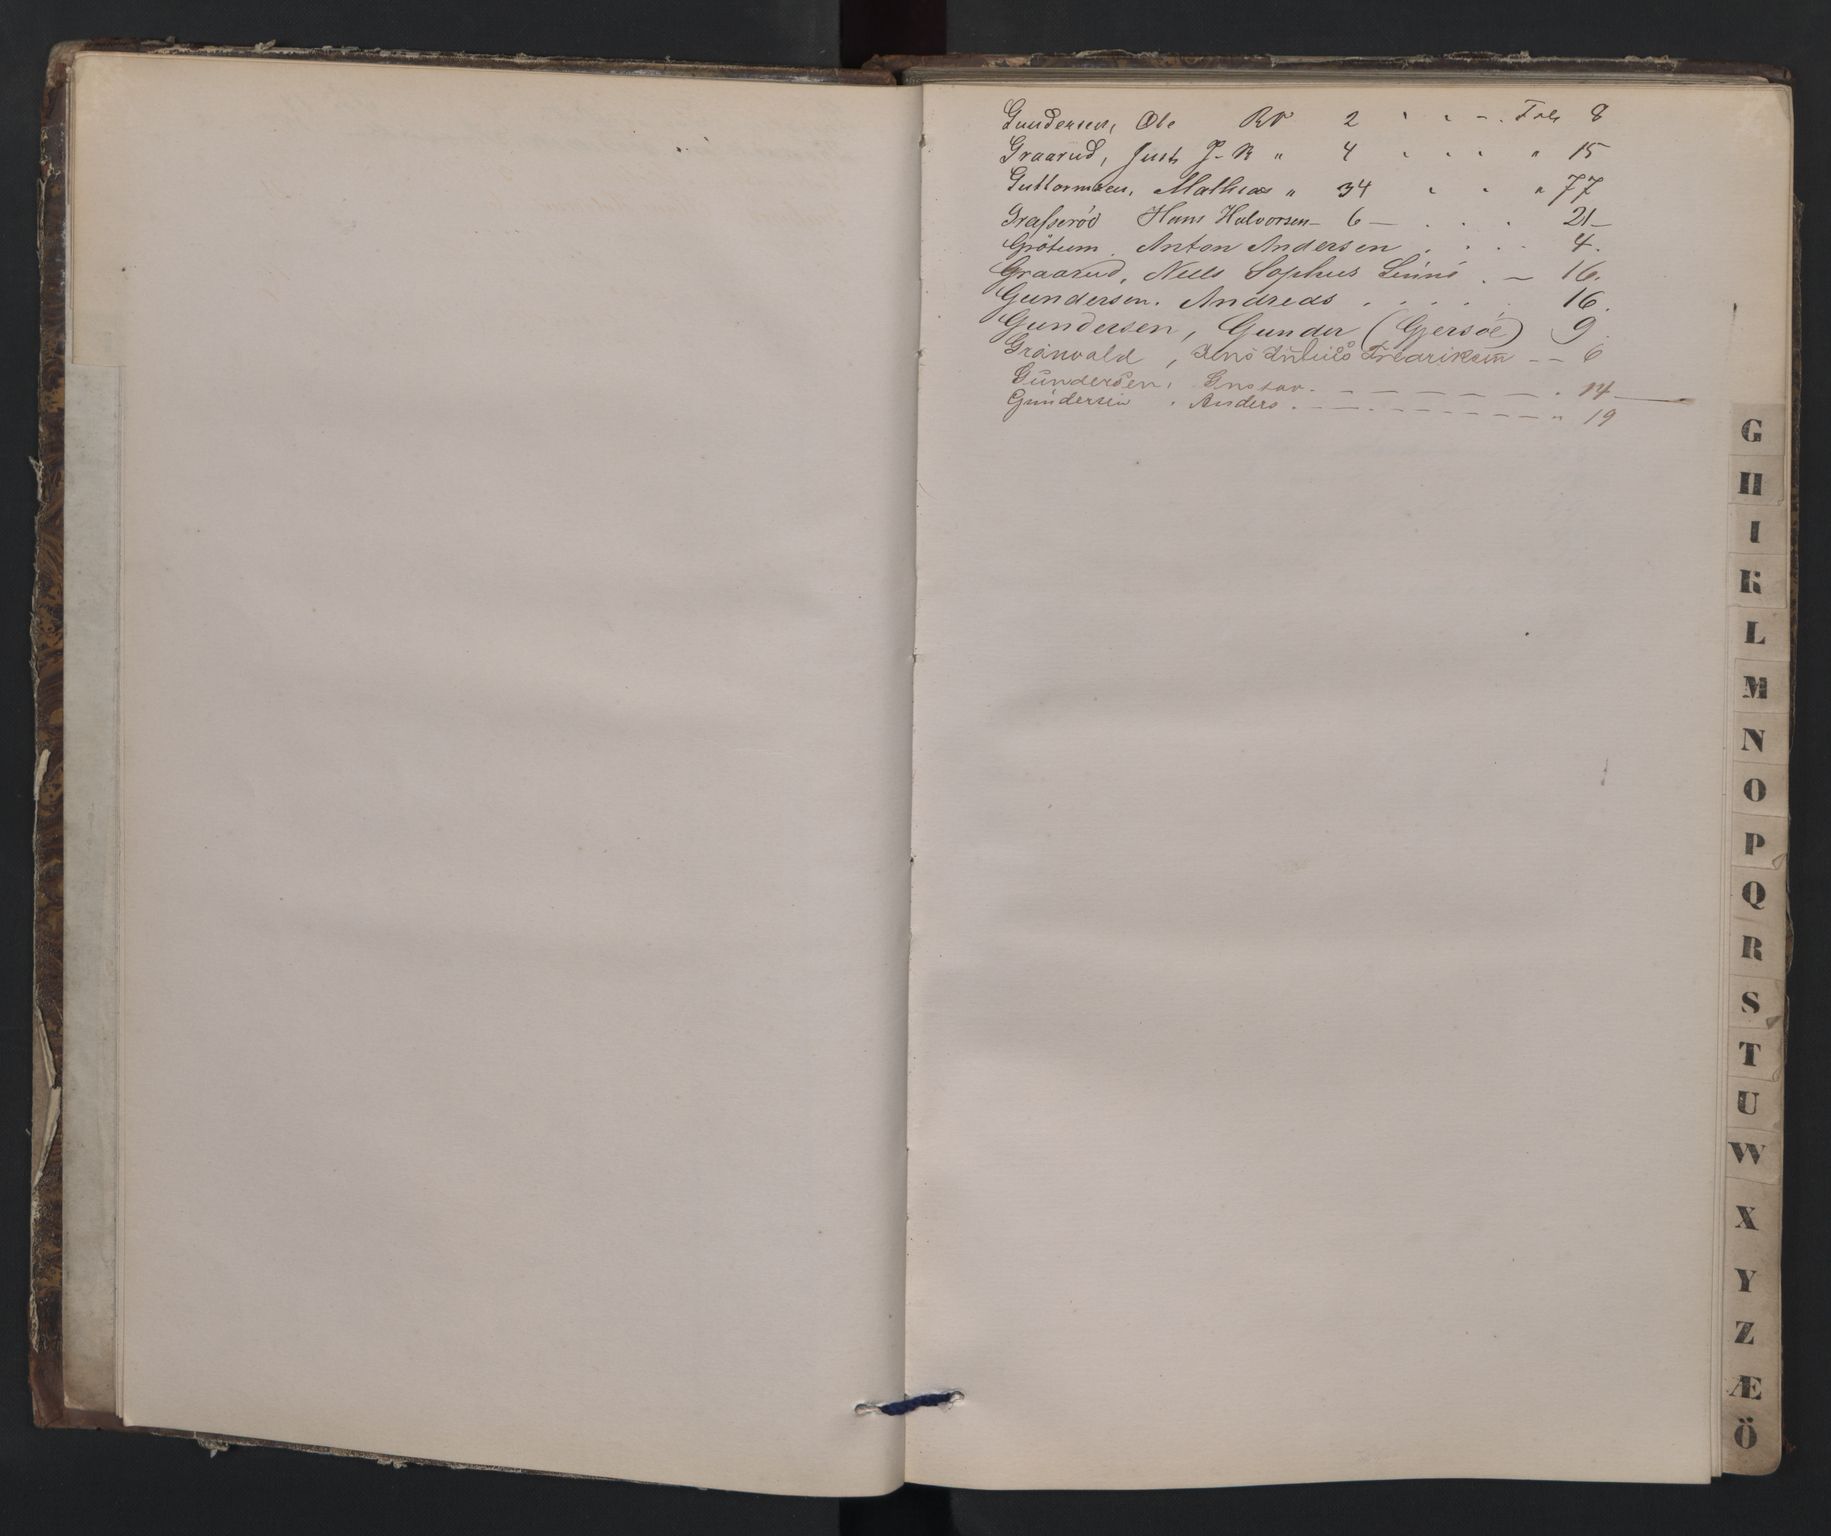 Gundersen, Ole RN 2 " " - . Fol. 8
Graarud, Just J. R " 4 " " " " 15
Guttormsen, Mathias " 34 " " " 77
Grafserød Hans Halvorsen - 6 - . . . 21 -
Grötum. Anton Andersen . . . . 4.
Graarud, Niels Sophus Linné . - 16.
Gundersen. Andreas . . . . . 16.
Gundersen, Gunder (Gjersöe) 9
Grönvold, Jens Julius Fredriksen - - 6
Gundersen, Gustav. - - - - - - . 14
Gundersen . Anders . - - - - - - - - - " 19
G
H
I
K
L
M
N
O
P
Q
R
S
T
U
W
X
Y
Z
Æ
Ö